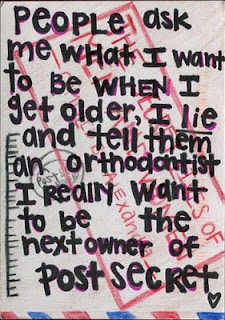 PEOPLE ask
me what I want
to be WHEN I
get older, I lie
and tell them
an orthodontist
I Really want
to be the
next owner of
Post Secret